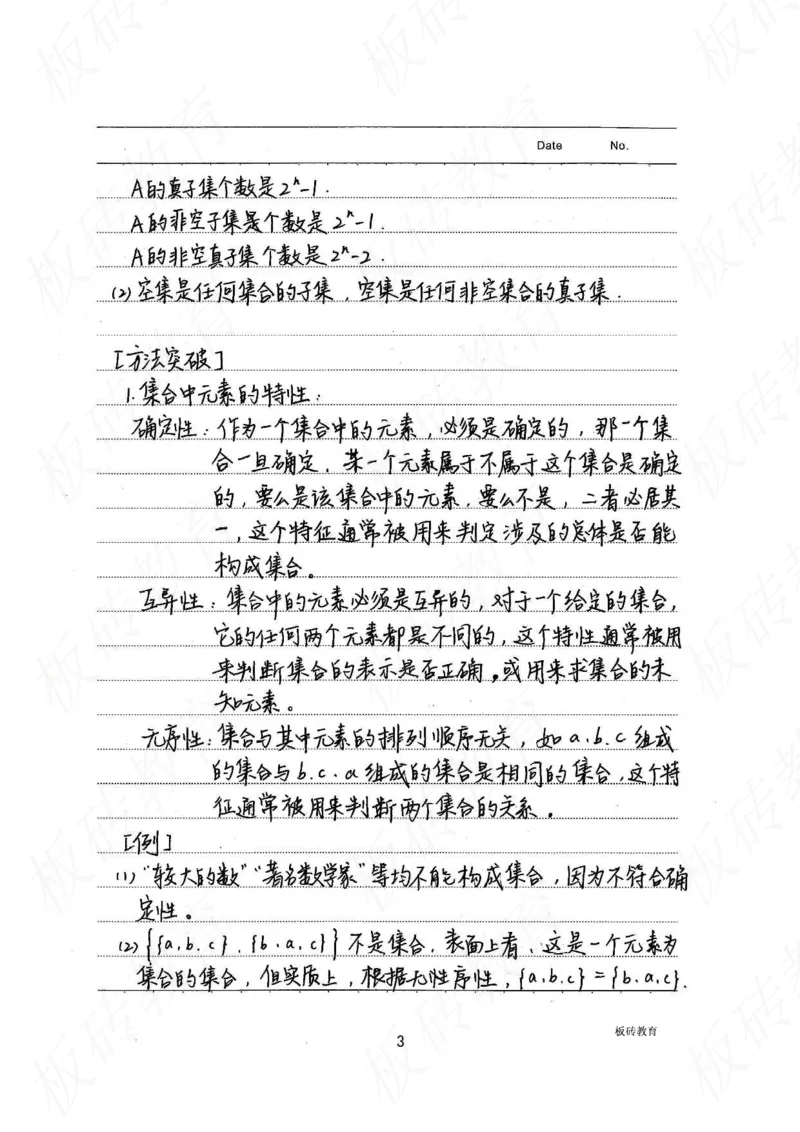 Date No.
A的真子集个数是2ⁿ-1.
A的非空子集是个数是2ⁿ-1.
A的非空真子集个数是2ⁿ-2.
(2) 空集是任何集合的子集，空集是任何非空集合的真子集.
[方法突破]
1. 集合中元素的特性：
确定性：作为一个集合中的元素，必须是确定的，那一个集
合一旦确定，某一个元素属于不属于这个集合是确定
的，要么是该集合中的元素，要么不是，二者必居其
一，这个特征通常被用来判定涉及的总体是否能
构成集合。
互异性：集合中的元素必须是互异的，对于一个给定的集合，
它的任何两个元素都是不同的，这个特性通常被用
来判断集合的表示是否正确。或用来求集合的未
知元素。
无序性：集合与其中元素的排列顺序无关，如a、b、c组成
的集合与b、c、a组成的集合是相同的集合，这个特
征通常被用来判断两个集合的关系。
[例]
(1) “较大的数”“著名数学家”等均不能构成集合，因为不符合确
定性。
(2) {{a,b,c}，{b,a,c}}不是集合，表面上看、这是一个元素为
集合的集合，但实质上，根据无性序性，{a,b,c}={b,a,c}.
板砖教育
3
板砖教育